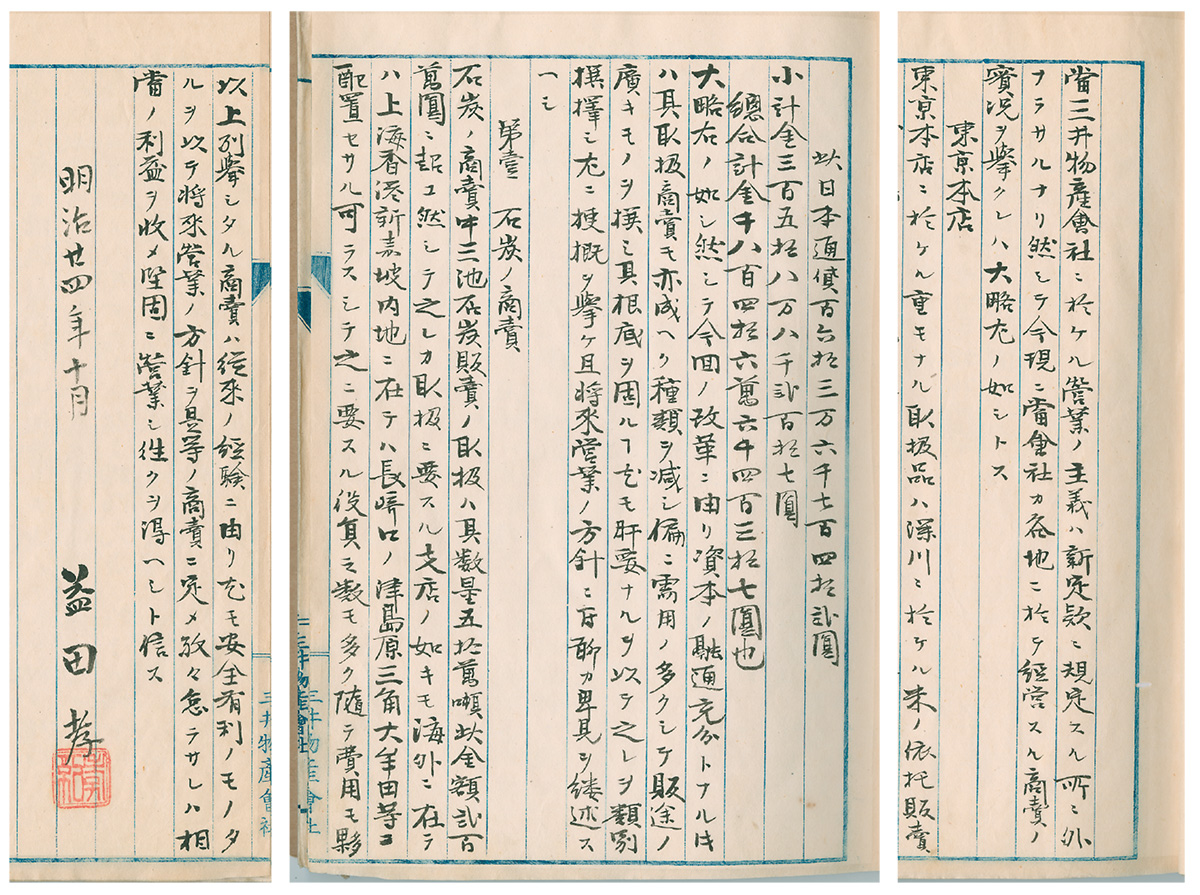 當三井物産會社ニ於ケル營業ノ主義ハ新定款ニ規定スル所ニ外
ナラサルナリ然シテ今現ニ當會社カ各地ニ於テ経営スル商賣ノ
實況ヲ擧クレハ大略左ノ如シトス
東京本店
東京本店ニ於ケル重モナル取扱品ハ深川ニ於ケル米ノ依托販賣
此日本通貨百六拾三万六千七百四拾弐圓
小計金三百五拾八万八千弐百拾七圓
總合計金千八百四拾六萬六千四百三拾七圓也
大略右ノ如シ然シテ今回ノ改革ニ由リ資本ノ融通充分トナルキ
ハ其取扱商賣モ亦成ヘク種類ヲ减シ偏ニ需用ノ多クシテ販途ノ
廣キモノヲ撰ミ其根底ヲ固ルヿ尤モ肝要ナルヲ以テ之レヲ類別
撰擇シ左ニ梗概ヲ擧ケ且将来営業ノ方針ニ付聊カ卑見ヲ縷述ス
ヘシ
第壹 石炭ノ商賣
石炭ノ商賣中三池石炭販賣ノ取扱ハ其数量五拾萬噸此金額弐百
萬圓ニ超ユ然シテ之レカ取扱ニ要スル支店ノ如キモ海外ニ在テ
ハ上海香港新嘉坡内地ニ在テハ長崎口ノ津島原三角大牟田等ヱ
配置セサル可ラスシテ之ニ要スル役員之数モ多ク随テ費用モ夥
三井物産會社
三井物産會社
以上列擧シタル商賣ハ従来ノ経験ニ由リ尤モ安全有利ノモノタ
ルヲ以テ将来営業ノ方針ヲ是等ノ商賣ニ定メ孜々怠ラサレハ相
當ノ利益ヲ收メ堅固ニ營業シ往クヲ得ヘシト信ス
明治廿四年十月
益田孝
三井物産會社